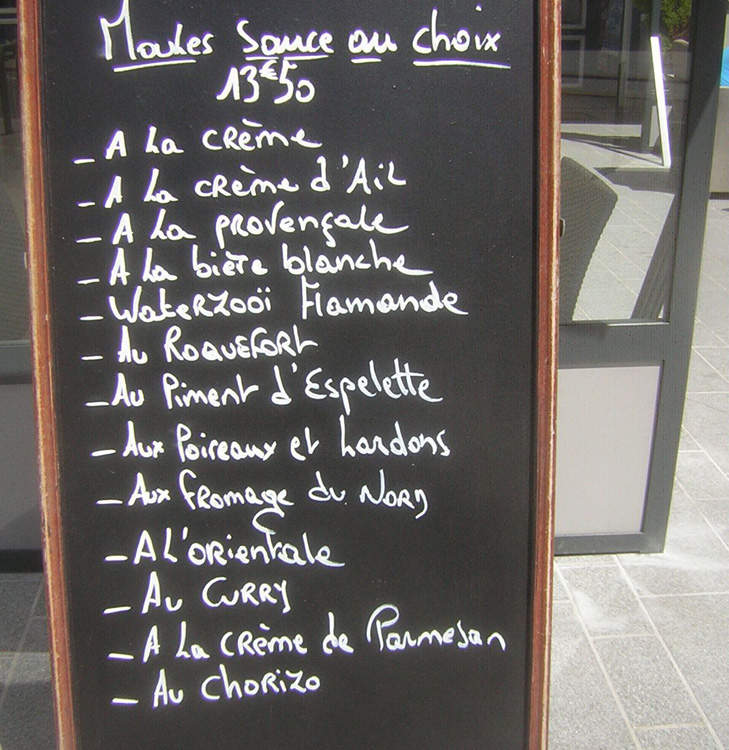 Moules Sauce au choix
13€50
_ A La CRème
_ A La CRème d'Ail
_ A La provençale
_ A La bière blanche
_ WateRZooï Flamande
_ Au RoQUEFORt
_ Au Piment d'Espelette
_ Aux Poireaux et Lardons
_ Aux fromage du NoRD
_ A L'ORientale
_ Au CURRY
_ A La CRème de Parmesan
_ Au ChoRizo